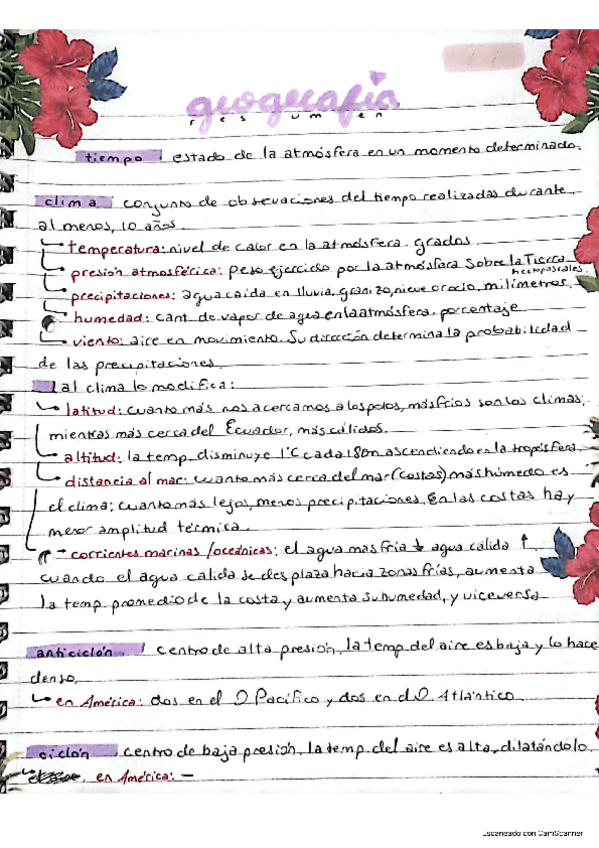 geografía
resumen
tiempo: estado de la atmósfera en un momento determinado.
clima: conjunto de observaciones del tiempo realizadas durante,
al menos, 10 años.
temperatura: nivel de calor en la atmósfera. grados
presión atmosférica: peso ejercicio por la atmósfera sobre la Tierra
hectopascales.
precipitaciones: agua caída en lluvia, granizo, nieve o rocío. milímetros.
humedad: cant de vapor de agua en la atmósfera. porcentaje
viento: aire en movimiento. Su dirección determina la probabilidad
de las precipitaciones.
al clima lo modifica:
latitud: cuanto más nos acercamos a los polos, más fríos son los climas;
mientras más cerca del Ecuador, más cálidos.
altitud: la temp. disminuye 1°C cada 180m ascendiendo en la tropósfera.
distancia al mar: cuanto más cerca del mar (costas) más húmedo es
el clima; cuanto más lejos, menos precipitaciones. En las costas hay
menor amplitud térmica.
corrientes marinas/oceánicas: el agua más fría ↓ agua cálida ↑
cuando el agua cálida se desplaza hacia zonas frías, aumenta
la temp promedio de la costa y aumenta su humedad, y viceversa
anticiclón: centro de alta presión, la temp del aire es baja y lo hace
denso.
en América: dos en el O Pacífico y dos en el O Atlántico.
ciclón: centro de baja presión, la temp del aire es alta, dilatándolo.
en América: -
Escaneado con CamScanner